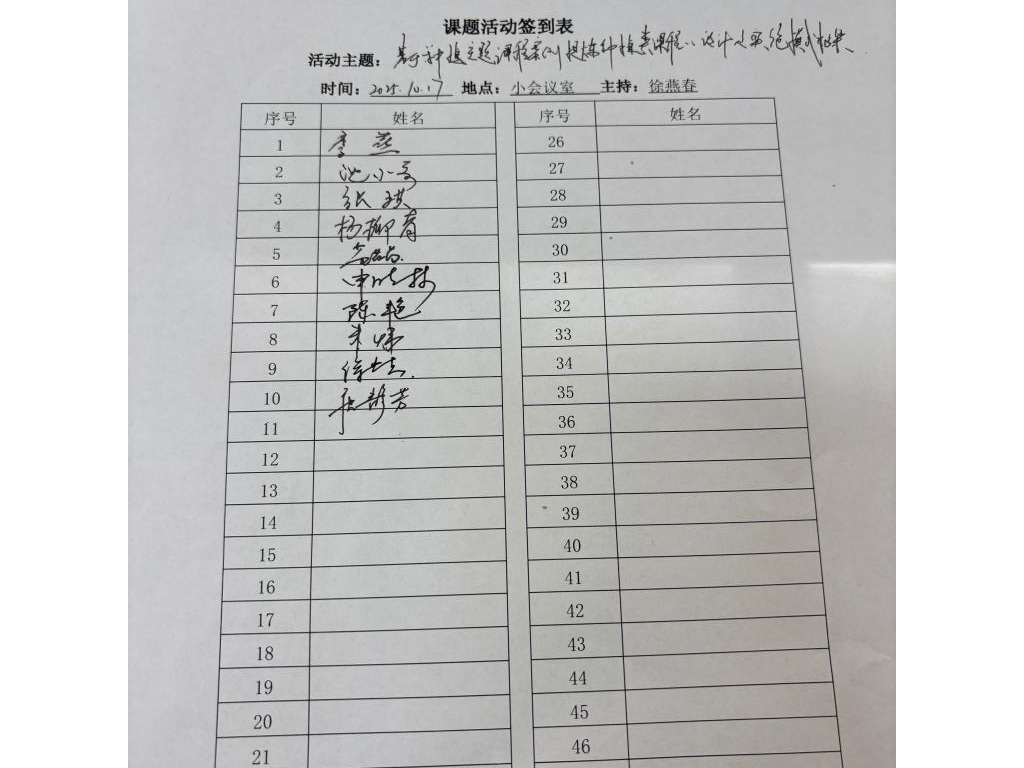 课题活动签到表
活动主题：基于种植主题课程案例提炼种植类课程设计
时间：2025.10.17 地点：小会议室 主持：徐燕春
序号 姓名 序号 姓名
1 李燕 26
2 池小 27
3 张琪 28
4 杨柳青 29
5 30
6 申 31
7 陈艳 32
8 朱娣 33
9 徐 34
10 张彩芳 35
11 36
12 37
13 38
14 39
15 40
16 41
17 42
18 43
19 44
20 45
21 46